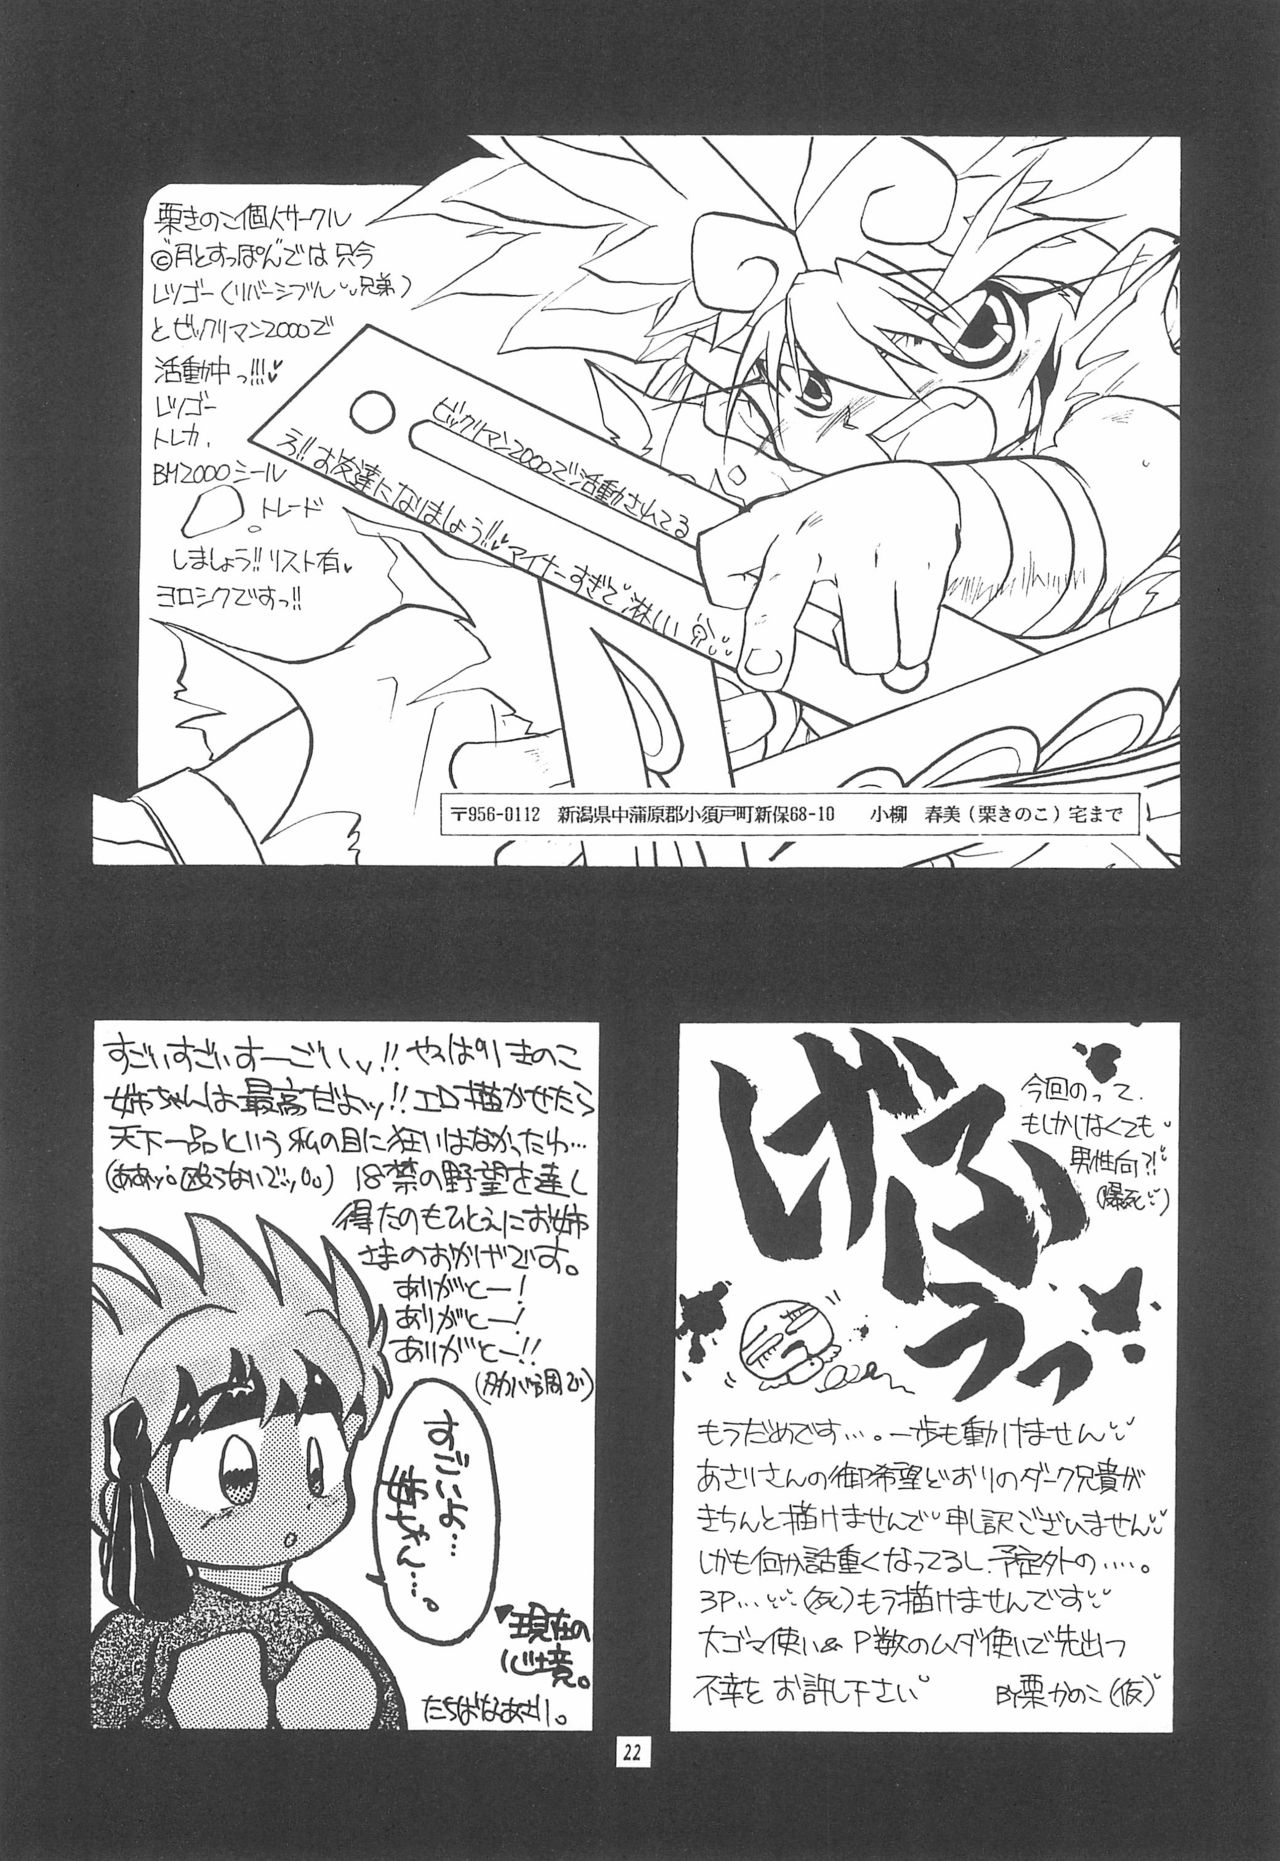 栗きのこ個人サークル
©月とすっぽんでは只今
レツゴー(リバーシブル兄弟)
とビックリマン2000で
活動中っ!!!♥
レツゴー
トレカ、
BM2000シール
トレード
しましょう!!リスト有♥
ヨロシクですっ!!
ビックリマン2000で活動されてる
え!!お友達になりましょう!!♥マイナーすぎて淋しい
〒956-0112 新潟県中蒲原郡小須戸町新保68-10 小柳 春美(栗きのこ)宅まで
すごいすごいすーごいい!!やっぱりきのこ
姉ちゃんは最高だよッ!!エロ描かせたら
天下一品という私の目に狂いはなかったわ…
(ああッ。殴らないでッ。。) 18禁の野望を達し
得たのもひとえにお姉
さまのおかげです。
ありがとー!
ありがとー!
ありがとー!!
すごいよ…
姉ちゃん…。
現在の
心境。
たちばなあさり。
げふうっ
今回のって、
もしかしなくても
男性向?!
(爆死)
もうだめです…。一歩も動けません
あさりさんの御希望どおりのダーク兄貴が
きちんと描けませんで申し訳ございません
しかも何か話重くなってるし、予定外の……。
3P…(死)もう描けませんです
大ゴマ使い& P数のムダ使いで先出つ
不幸を お許し下さい By栗かのこ(仮)
22